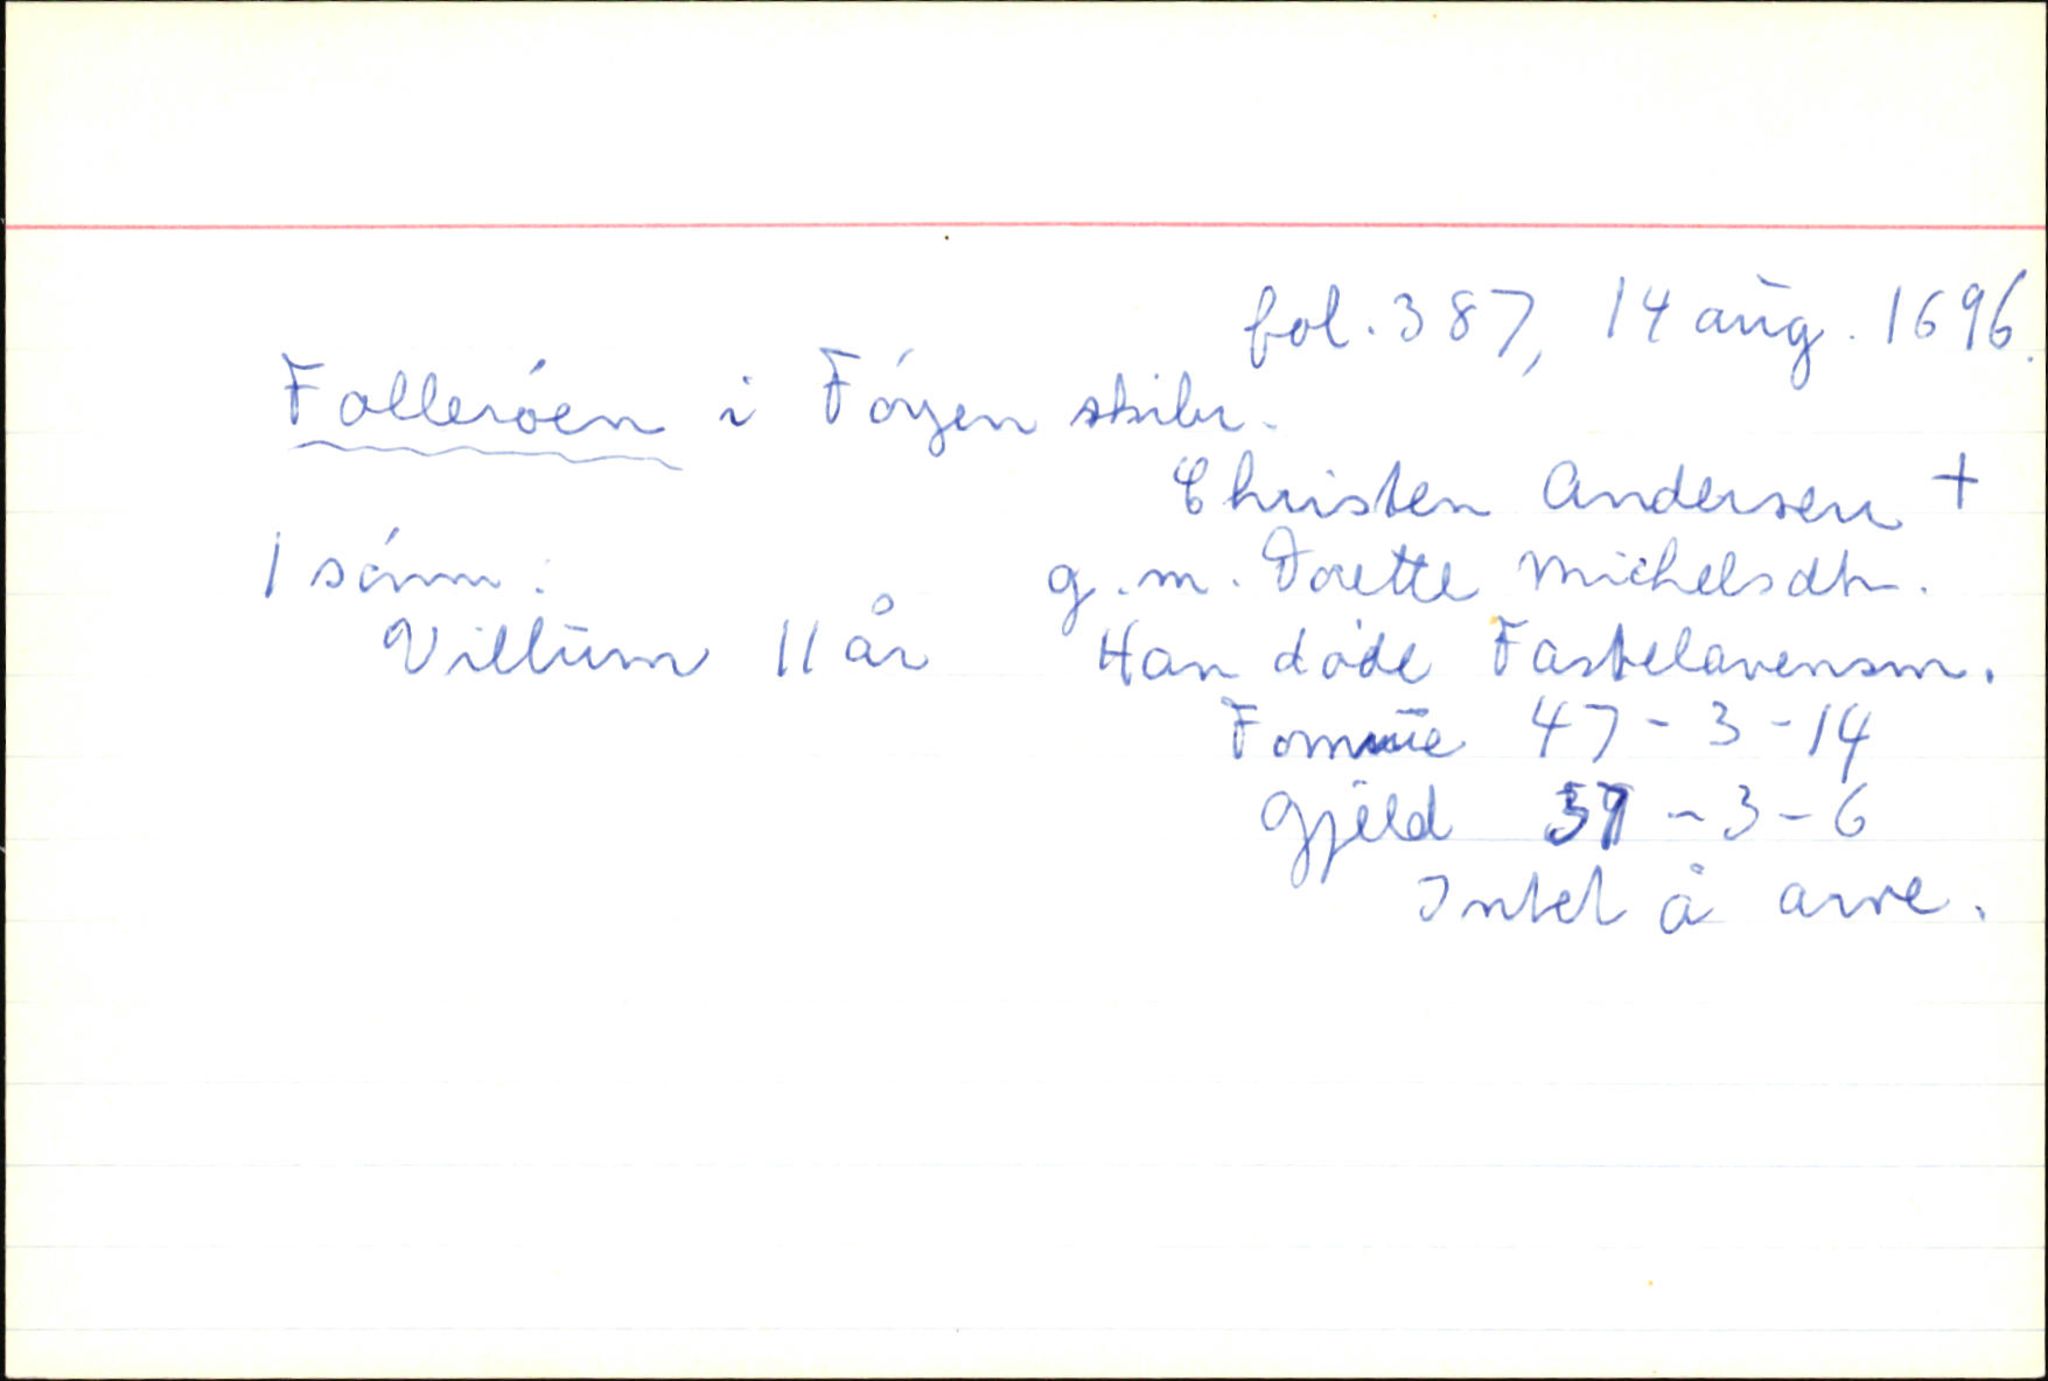 fol. 387, 14 aug. 1696.
Follerøen i Føyen skibr.
Christen Andersen +
1 sønn: g.m. Dorette Michelsdtr.
Villum 11 år Han døde Fastelavensm.
Formue 47-3-14
Gjeld 57-3-6
Intet å arve.